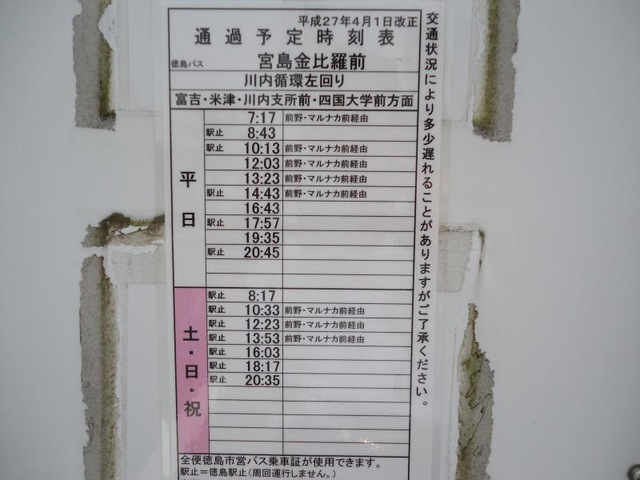 平成27年4月1日改正
通過予定時刻表
徳島バス 宮島金比羅前
川内循環左回り
富吉・米津・川内支所前・四国大学前方面
平日
7:17 前野・マルナカ前経由
駅止 8:43
駅止 10:13 前野・マルナカ前経由
12:03 前野・マルナカ前経由
13:23 前野・マルナカ前経由
駅止 14:43 前野・マルナカ前経由
16:43
駅止 17:57
19:35
駅止 20:45
土・日・祝
駅止 8:17
駅止 10:33 前野・マルナカ前経由
駅止 12:23 前野・マルナカ前経由
駅止 13:53 前野・マルナカ前経由
駅止 16:03
駅止 18:17
駅止 20:35
全便徳島市営バス乗車証が使用できます。
駅止=徳島駅止(周回運行しません。)
交通状況により多少遅れることがありますがご了承ください。